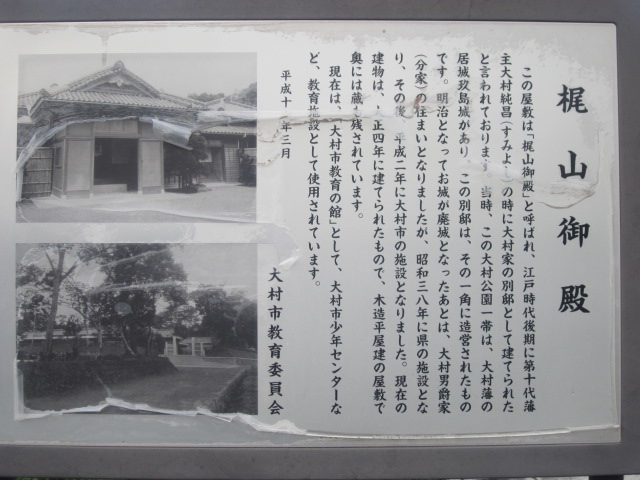 梶山御殿
この屋敷は「梶山御殿」と呼ばれ、江戸時代後期に第十代藩
主大村純昌(すみよ の時に大村家の別邸として建てられた
と言われております 当時、この大村公園一帯は、大村藩の
居城玖島城があり、この別邸は、その一角に造営されたもの
です。明治となってお城が廃城となったあとは、大村男爵家
(分家)の住まいとなりましたが、昭和三八年に県の施設とな
り、その後、平成二年に大村市の施設となりました。現在の
建物は、 正四年に建てられたもので、木造平屋建の屋敷で
奥には蔵も残されています。
現在は、「大村市教育の館」として、大村市少年センターな
ど、教育施設として使用されています。
平成十 年三月
大村市教育委員会